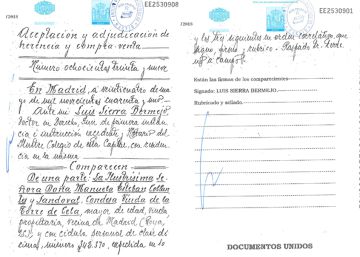 EE2530908
Aceptación y adjudicación de
herencia y compra-venta
Número ochocientos treinta y nueve
En Madrid, a veintinueve de ma-
yo de mil novecientos cuarenta y
Ante mí Luis Sierra Bermejo
Doctor en Derecho, Juez de primera instan-
cia e instrucción excedente, Notario del
Ilustre Colegio de esta Capital, con residen-
cia en la misma
Comparecen
De una parte: La Ilustrísima Se-
ñora Doña Manuela Esteban Collan-
tes y Sandoval, Condesa Viuda de la
Torre de Cela, mayor de edad, viuda
propietaria, vecina de Madrid, (Goya,
y con cédula personal de clase dé-
cima, número expedida en
EE2530901
y los siguientes en orden correlativo, que
signo, firmo y rubrico.
Están las firmas de los comparecientes.
Signado: LUIS SIERRA BERMEJO.
Rubricado y sellado.
DOCUMENTOS UNIDOS